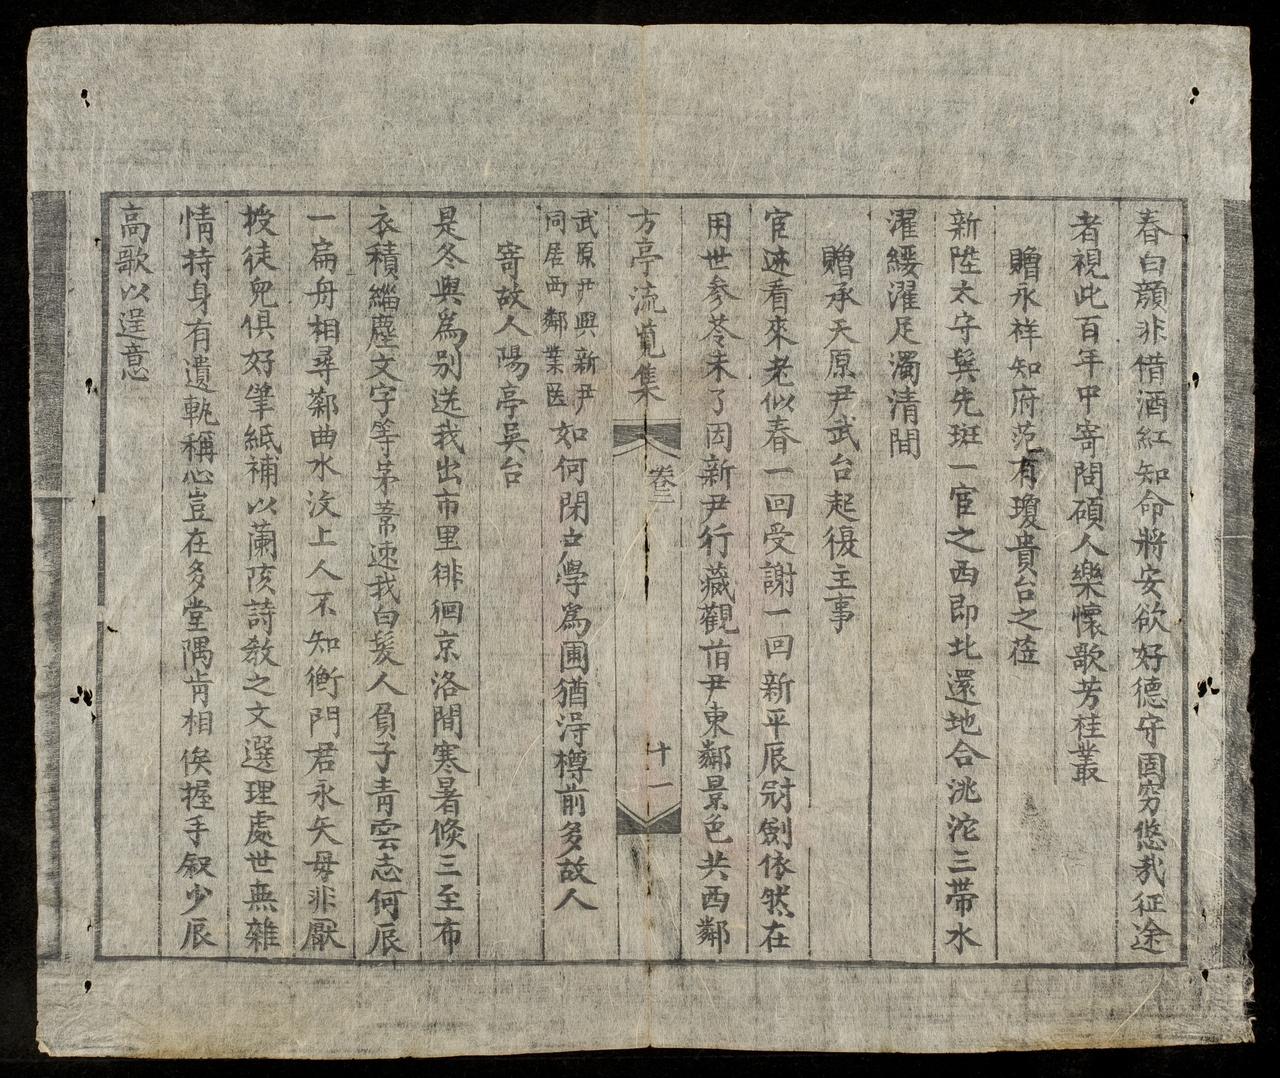 春白顔非借酒紅知命將安欲好德守固穷悠㢤征途
者視此百年中寄問碩人樂懷歌芳桂叢
贈永祥知府范有瓊貴台之莅
新陞太守鬂先斑一官之西即北還地合洮沱三帶水
濯緩濯足濁清間
贈承天原尹武台起復主事
官迹看來老似春一回受謝一回新平辰冠劍依然在
用世參苓未了因新尹行藏觀旧尹東鄰景色共西鄰
方亭流覽集 卷三 十一
武原尹與新尹
同居西鄰業医
如何閉户學爲圃猶淂樽前多故人
寄故人陽亭吳台
是冬與爲别送我出市里徘徊京洛間寒暑倏三至布
衣積緇塵文字等茅葦速我白髪人負子青雲志何辰
一扁舟相尋鄰曲水汶上人不知衡門君永矢毋非厭
授徒兒俱好筆紙補以蘭陔詩教之文選理處世無雜
情持身有遺軌稱心豈在多堂隅肯相俟握手叙少辰
高歌以逞意